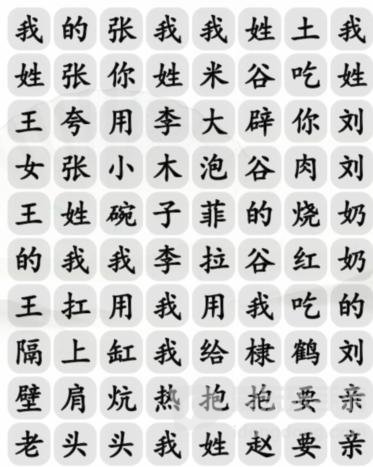 我的张我我姓土我
姓张你姓米谷吃姓
王夸用李大辟你刘
女张小木泡谷肉刘
王姓碗子菲的烧奶
的我我李拉谷红奶
王扛用我用我吃的
隔上缸我给棣鹤刘
壁肩炕热抱抱要亲
老头头我姓赵要亲